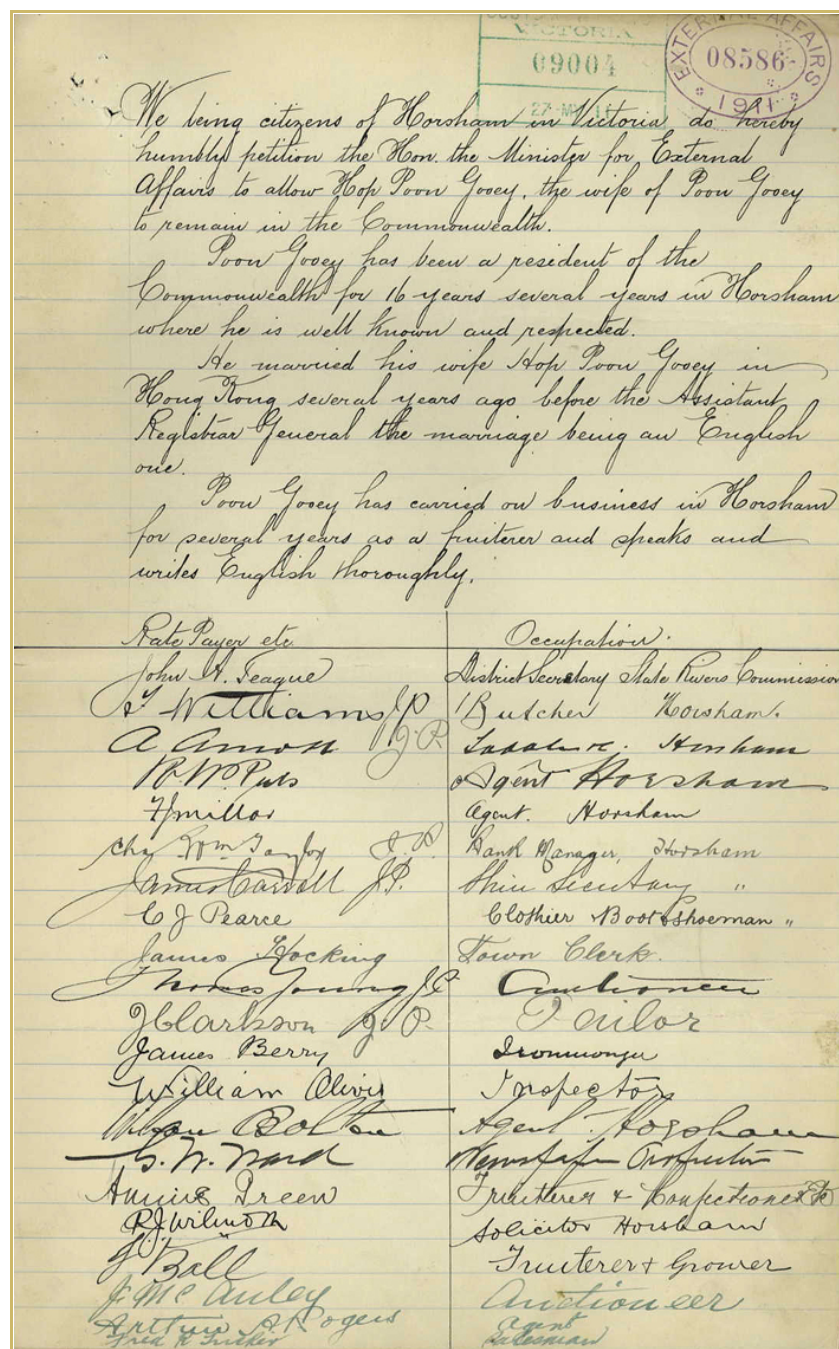 VICTORIA
09004
EXTERNAL AFFAIRS
08586
1911
We being citizens of Horsham in Victoria do hereby
humbly petition the Hon. the Minister for External
Affairs to allow Hop Poon Gooey, the wife of Poon Gooey
to remain in the Commonwealth.
Poon Gooey has been a resident of the
Commonwealth for 16 years several years in Horsham
where he is well known and respected.
He married his wife Hop Poon Gooey in
Hong Kong several years ago before the Assistant
Registrar General the marriage being an English
one.
Poon Gooey has carried on business in Horsham
for several years as a fruiterer and speaks and
writes English thoroughly.
Rate Payer etc Occupation.
John A. Teague District Secretary State Rivers Commission
Williams JP Butcher Horsham.
A J.P. Horsham
Agent Horsham
Millar Agent. Horsham
Chas Wm Taylor J.P. Bank Manager, Horsham
James Carroll JP. Shire Secretary "
C J Pearce Clothier & Boot & Shoeman "
James Hocking Town Clerk.
Thomas Young JP Auctioneer
J Clarkson J.P. Tailor
James Berry Ironmonger
William Oliver Inspector
Bolton Agent. Horsham
G. W. Ward Newspaper Proprietor
Annie Green Fruiterer & Confectioner Etc
R.J. Wilmoth Solicitor Horsham
Ball Fruiterer & Grower
J. McAuley Auctioneer
Arthur A Rogers Agent
Fred R Tucker Salesman